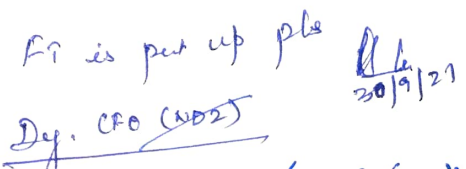 FT is put up pls
30/9/21
Dy. CFO (NDZ)